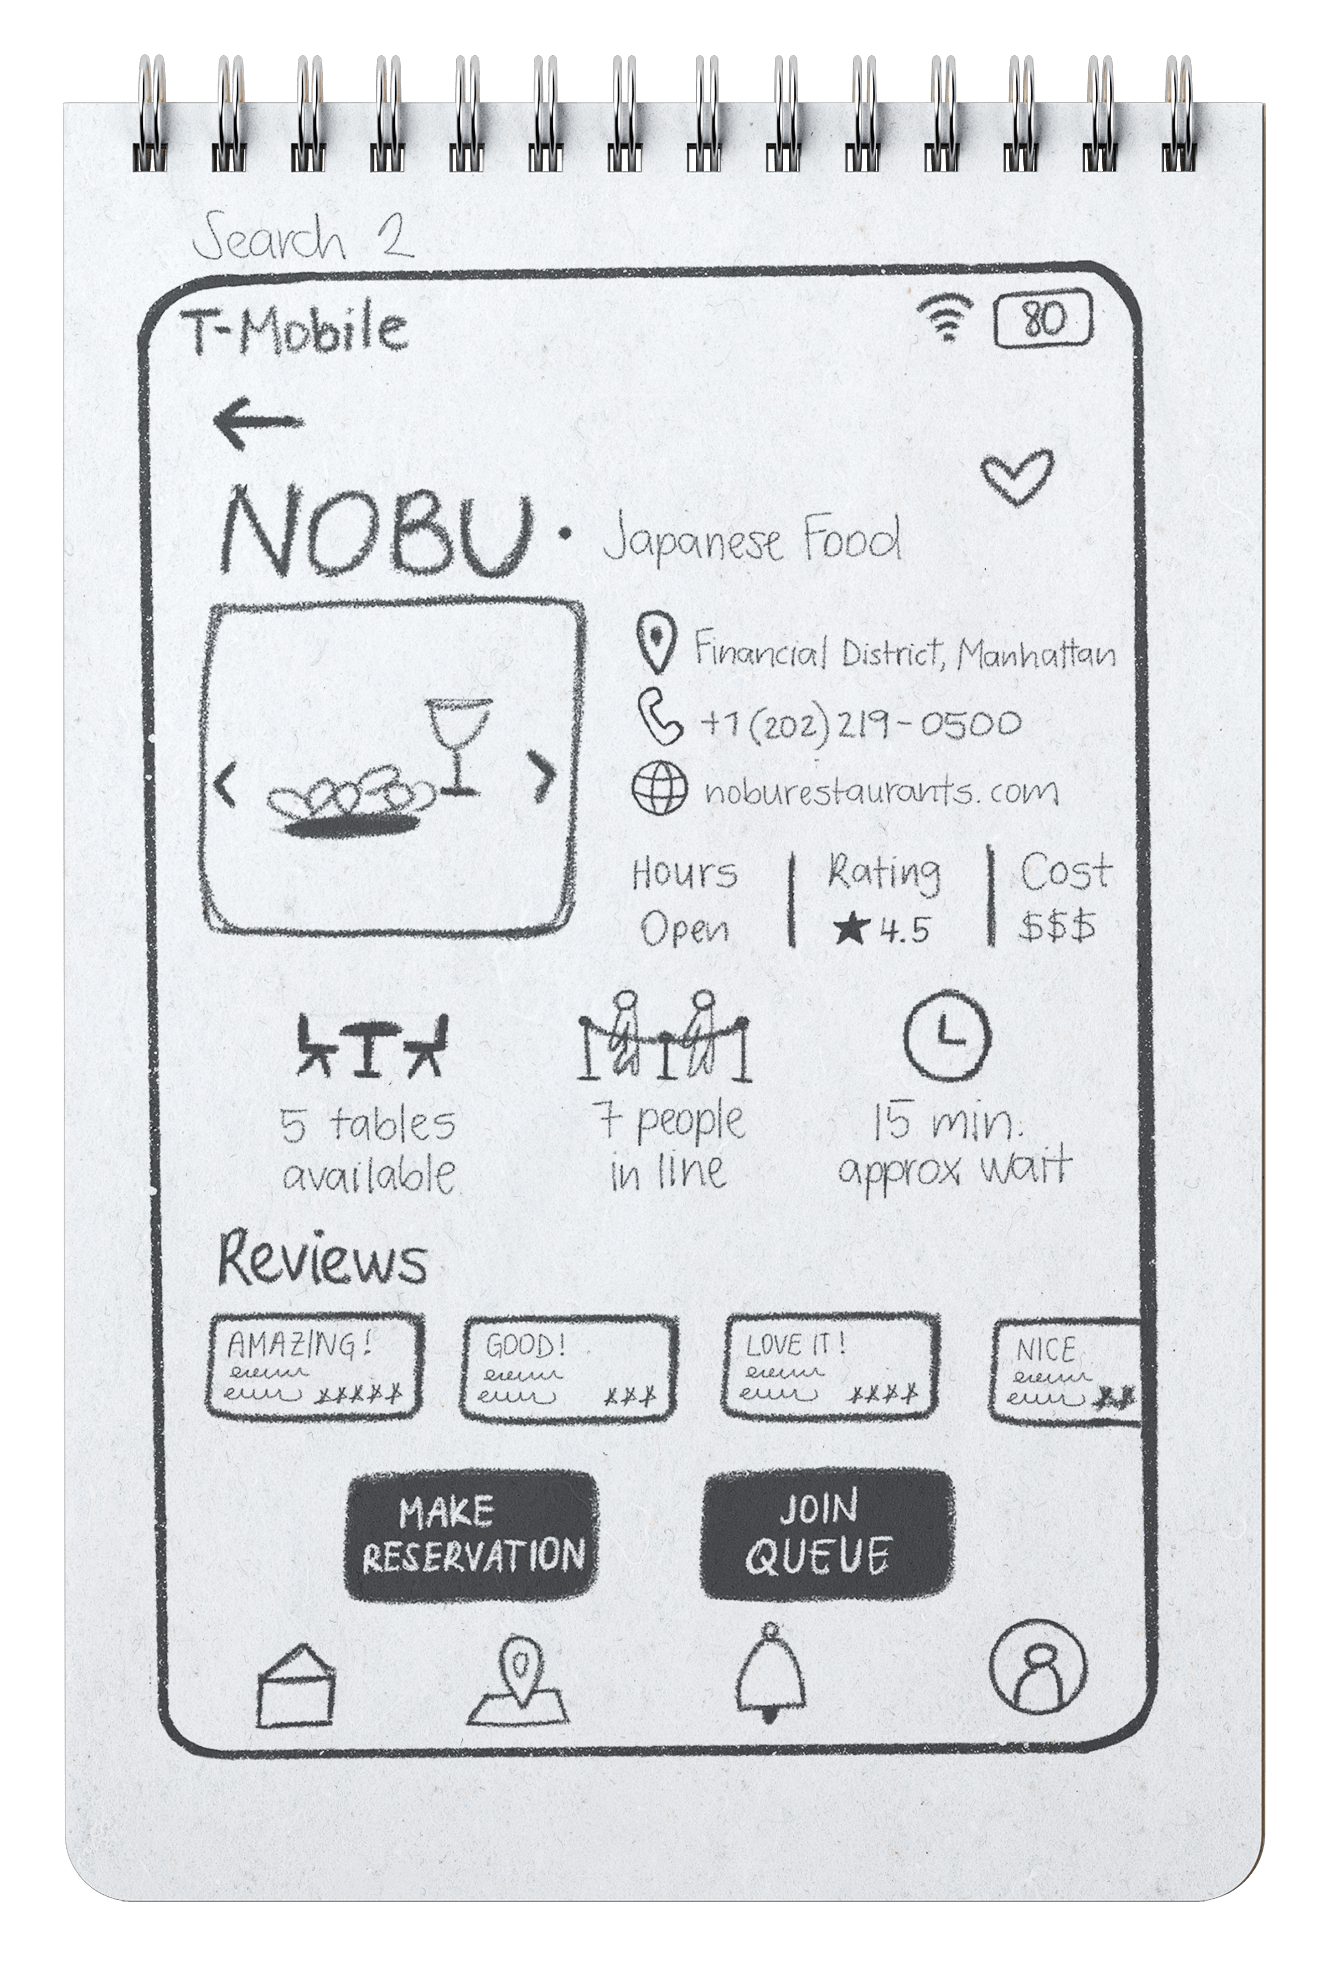 Search 2
T-Mobile
80
NOBU • Japanese Food
Financial District, Manhattan
+1 (202) 219-0500
noburestaurants.com
Hours | Rating | Cost
Open | ★ 4.5 | $$$
5 tables
available
7 people
in line
15 min.
approx wait
Reviews
AMAZING!
GOOD!
LOVE IT!
NICE
MAKE
RESERVATION
JOIN
QUEUE